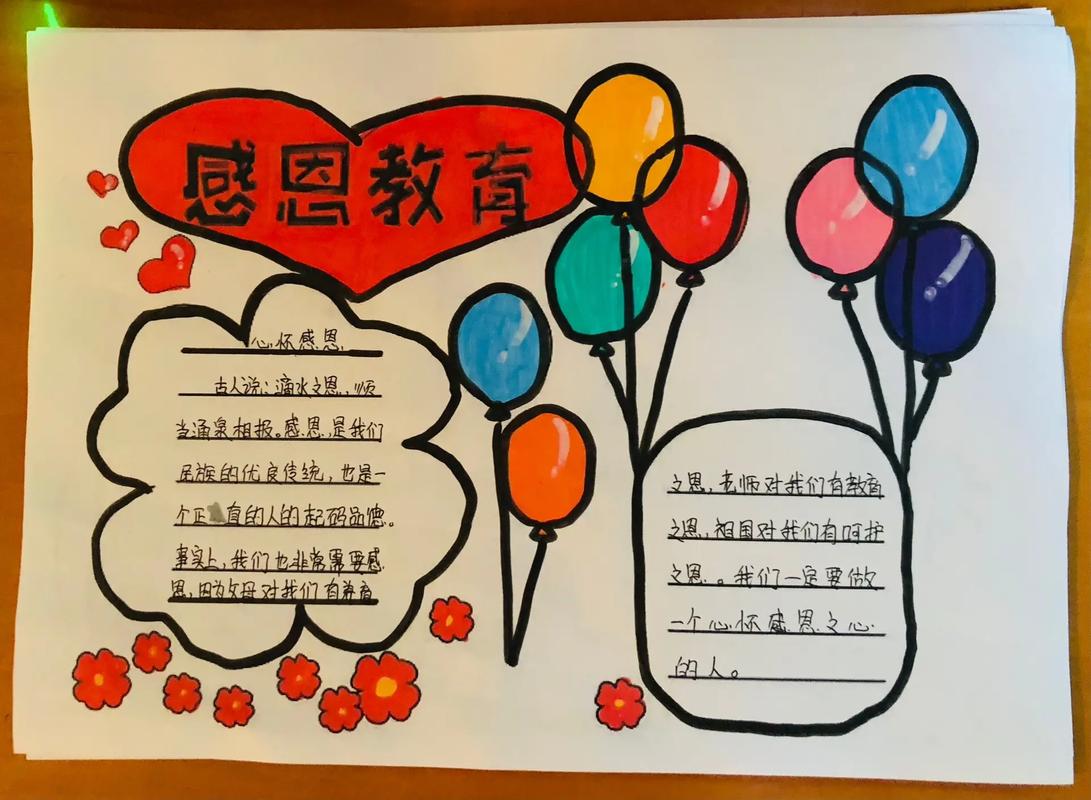 感恩教育
心怀感恩
古人说：滴水之恩，须
当涌泉相报。感恩是我们
民族的优良传统，也是一
个正直的人的起码品德。
事实上，我们也非常需要感
恩，因为父母对我们有养育
之恩，老师对我们有教育
之恩，祖国对我们有呵护
之恩。。我们一定要做
一个心怀感恩之心
的人。